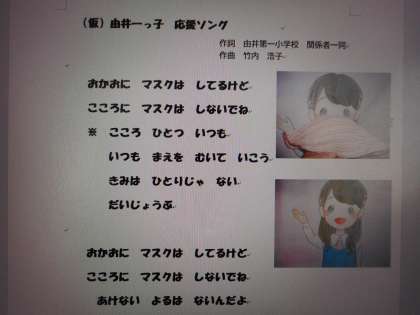 （仮）由井一っ子　応愛ソング
作詞　由井第一小学校　関係者一同
作曲　竹内　浩子
おかおに　マスクは　してるけど
こころに　マスクは　しないでね
※　こころ　ひとつ　いつも
いつも　まえを　むいて　いこう
きみは　ひとりじゃ　ない
だいじょうぶ
おかおに　マスクは　してるけど
こころに　マスクは　しないでね
あけない　よるは　ないんだよ